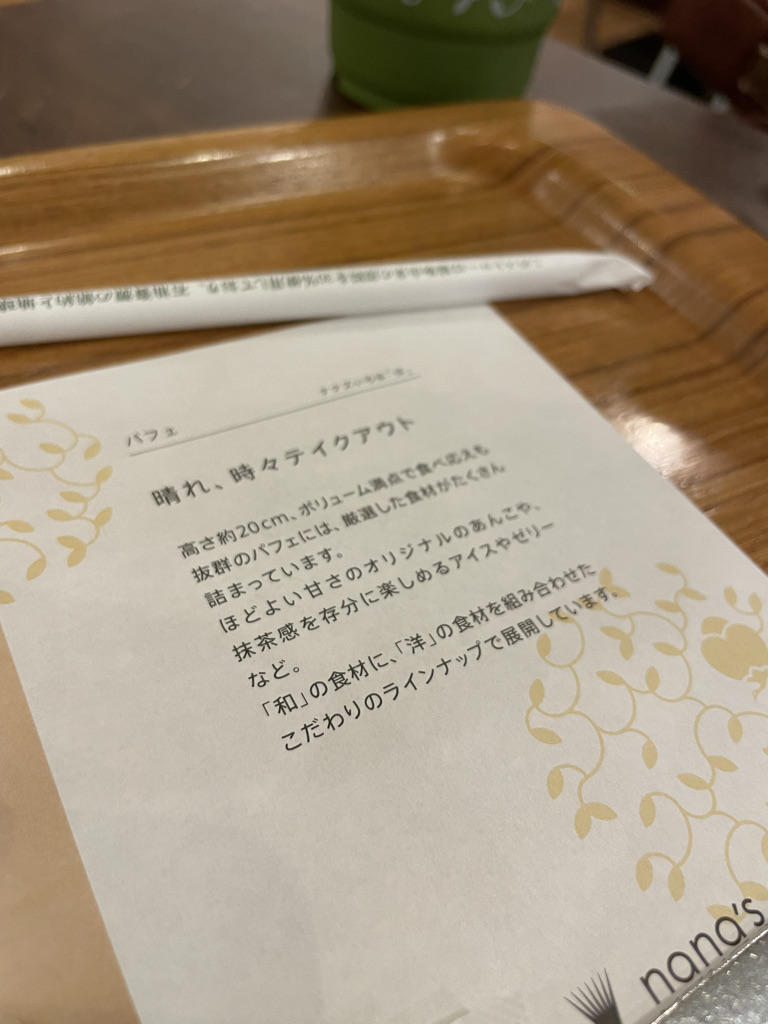 パフェ
晴れ、時々テイクアウト
高さ約20cm、ボリューム満点で食べ応えも
抜群のパフェには、厳選した食材がたくさん
詰まっています。
ほどよい甘さのオリジナルのあんこや、
抹茶感を存分に楽しめるアイスやゼリー
など。
「和」の食材に、「洋」の食材を組み合わせた
こだわりのラインナップで展開しています。
nana's